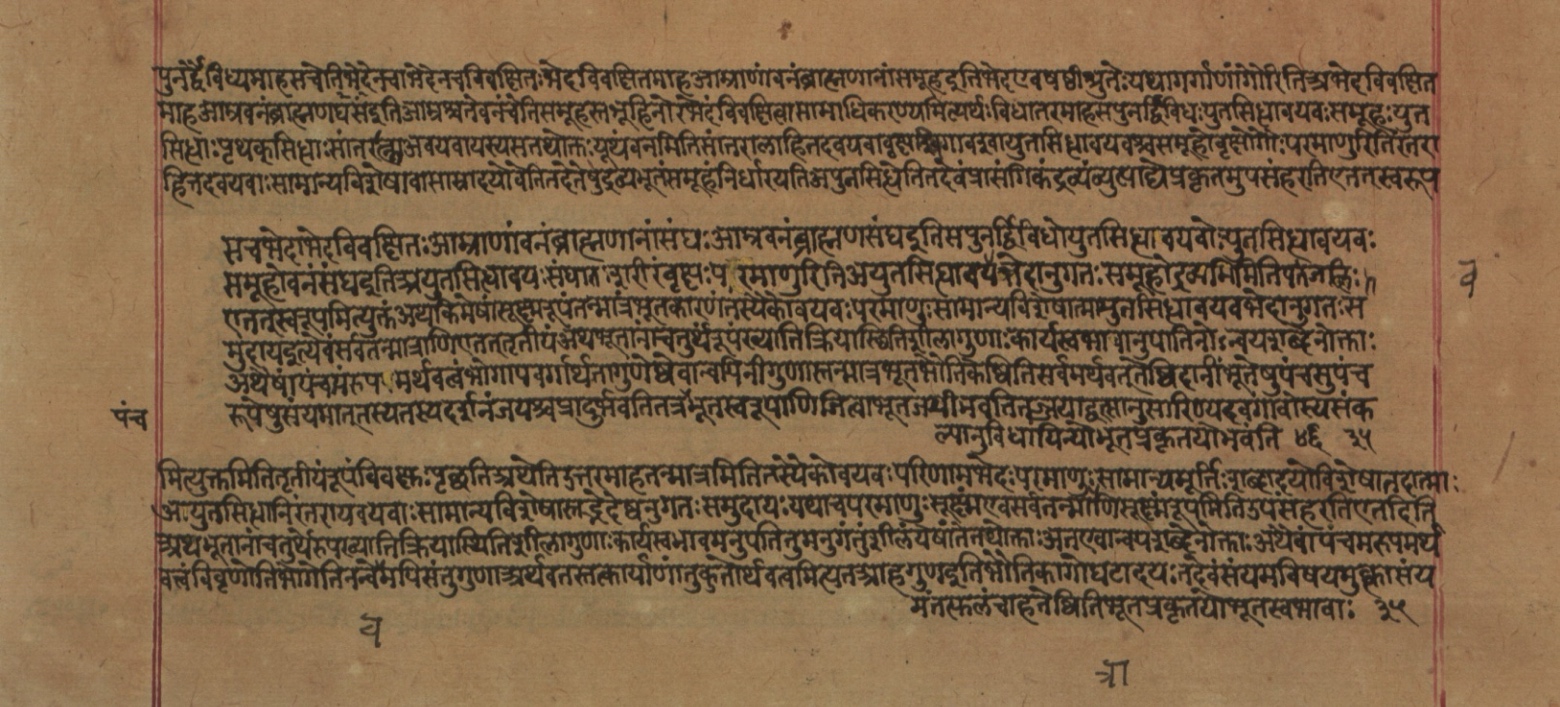 पुनर्द्वैविध्यमाहसचेतिभेदेनचाभेदेनचविवक्षितःभेदविवक्षितमाहआम्राणांवनंब्राह्मणानांसमूहइतिभेदएवषष्ठीश्रुतेःयथागर्गाणांगौरितिअभेदविवक्षित
माहआम्रवनंब्राह्मणघसंइतिआम्राश्चतेवनंचेतिसमूहसमूहिनोरभेदंविवक्षित्वासामाधिकरण्यमित्यर्थःविधांतरमाहसपुनर्द्विविधःयुतसिध्धावयवःसमूहःयुत
सिध्धाःपृथक्सिध्धाःसांतराला अवयवायस्यसतथोक्तःयूथंवनमितिसांतरालाहितदवयवावृक्षाश्चगावश्चायुतसिध्धावयवश्चसमूहोवृक्षोगौःपरमाणुरितिनिरंतरा
हितदवयवाःसामान्यविशेषावासास्नादयोवेतितदेतेषुद्रव्यभूतंसमूहंनिर्धारयतिअयुतसिध्धेतितदेवंप्रासंगिकंद्रव्यंव्युत्पाद्यप्रकृतमुपसंहरतिएतत्स्वरूप
सचभेदाभेदविवक्षितःआम्राणांवनंब्राह्मणानांसंघःआम्रवनंब्राह्मणसंघइतिसपुनर्द्विविधोयुतसिध्धावयवोःयुतसिध्धावयवः
समूहोवनंसंघइतिअयुतसिध्धावयः संघातः शरीरंवृक्षः परमाणुरितिअयुतसिध्धावयभेदानुगतःसमूहोद्रव्यमितिपतंजलिः॥
एतत्स्वरूपमित्युक्तंअथकिमेषांसूक्ष्मरूपंतन्मात्रंभूतकारणंतस्यैकोवयवःपरमाणुःसामान्यविशेषात्मायुतसिध्धावयवभेदानुगतःस
मुदायइत्येवंसर्वतन्मात्राणिएतत्तृतीयंअथभूतानांचतुर्थंरूपंख्यातिक्रियास्थितिशीलागुणाःकार्यस्वभावानुपातिनोऽन्वयशब्देनोक्ताः
अथैषांपंचमंरूपमर्थवत्वंभोगापवर्गार्थतागुणेष्वेवान्वयिनीगुणास्तन्मात्रभूतभौतिकेष्वितिसर्वमर्थवत्तेष्विदानींभूतेषुपंचसुपंच
पंच
रूपेषुसंयमात्तस्यतस्यदर्शनंजयश्चप्रादुर्भवतितत्रभूतस्वरूपाणिजित्वाभूतजयीभवतितज्जयाद्वत्सानुसारिण्यइवगावोस्यसंक
ल्पानुविधायिन्योभूतप्रकृतयोभवंति ४६ ३५
मित्युक्तमितितृतीयंरूपंविवक्षुःपृच्छतिअथेतिउत्तरमाहतन्मात्रमितितस्यैकोवयवःपरिणामभेदःपरमाणुःसामान्यमूर्तिःशब्दादयोविशेषातदात्माः
अयुतसिध्धानिरंतरायवयवाःसामान्यविशेषास्तद्भेदेष्वनुगतःसमुदायःयथाचपरमाणुःसूक्ष्मएवंसर्वतन्माणिसूक्ष्मंरूपमितिउपसंहरतिएतदिति
अथभूतानांचतुर्थंरूपंख्यातिक्रियास्थितिशीलागुणाःकार्यस्वभावमनुपतितुमनुगंतुंशीलंयेषांतेतथोक्ताःअतएवान्वयशब्देनोक्ताःअथैषांपंचमरूपमर्थ
वत्वंविवृणोतिभोगेतिनन्वेवमपिसंतुगुणाअर्थवंतस्तत्कार्याणांतुकुतोर्थवत्वमित्यतआहगुणाइतिभौतिकागोघटादयःतदेवंसंयमविषयमुक्त्वासंय
मंतत्फलंचाहतेष्वितिभूतप्रकृतयोभूतस्वभावाः ३५